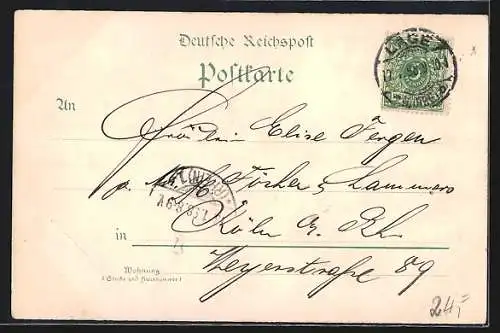 Deutsche Reichspost
Postkarte
LAGE
An
Fräulein Elise Fergen
p. Adr. H. Föcher & Lammers
Köln a. Rh.
in
Weyerstraße 89
Wohnung
(Straße und Hausnummer)
24,-